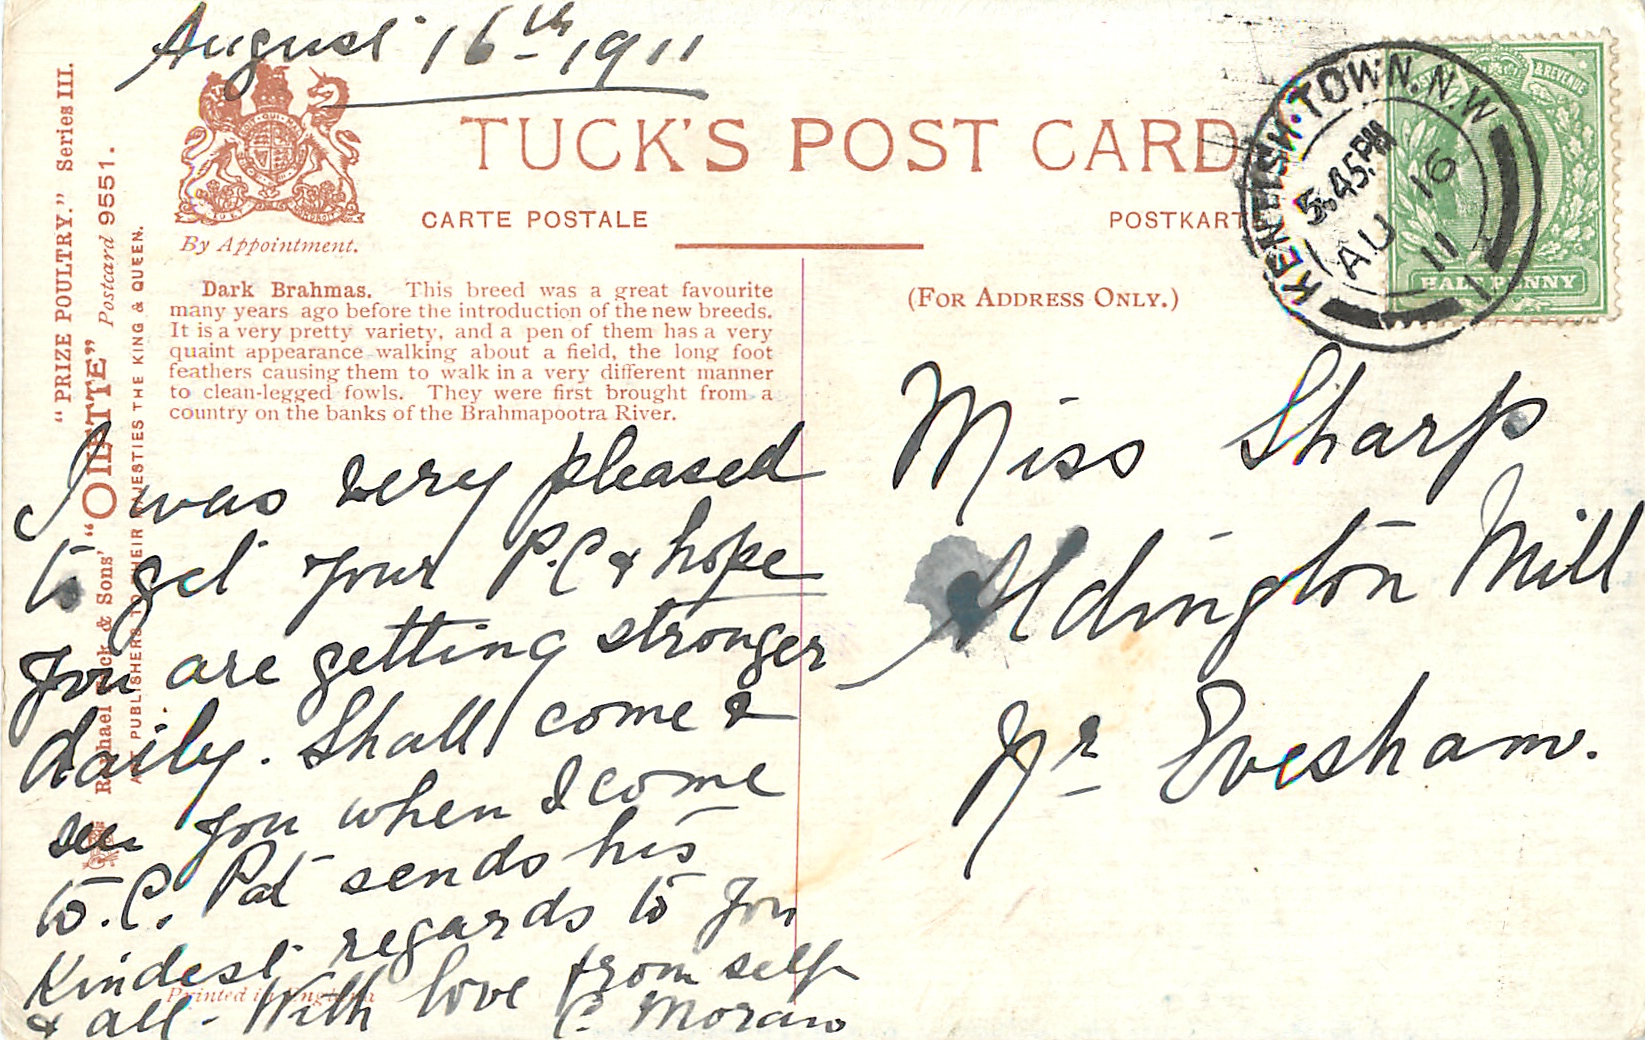 August 16th 1911
TUCK'S POST CARD
CARTE POSTALE
POSTKARTE
By Appointment.
(FOR ADDRESS ONLY.)
KENTISH·TOWN.N.W
5.45PM
AU 16
11
& REVENUE
HALFPENNY
"PRIZE POULTRY." Series III.
Raphael Tuck & Sons' "OILETTE" Postcard 9551.
ART PUBLISHERS TO THEIR MAJESTIES THE KING & QUEEN.
Dark Brahmas. This breed was a great favourite
many years ago before the introduction of the new breeds.
It is a very pretty variety, and a pen of them has a very
quaint appearance walking about a field, the long foot
feathers causing them to walk in a very different manner
to clean-legged fowls. They were first brought from a
country on the banks of the Brahmapootra River.
I was very pleased
to get your P.C & hope
you are getting stronger
daily. Shall come &
see you when I come
to C. Pat sends his
kindest regards to you
& all - With love from self
C. Moran
Printed in England
Miss Sharp
Aldington Mill
Nr Evesham.